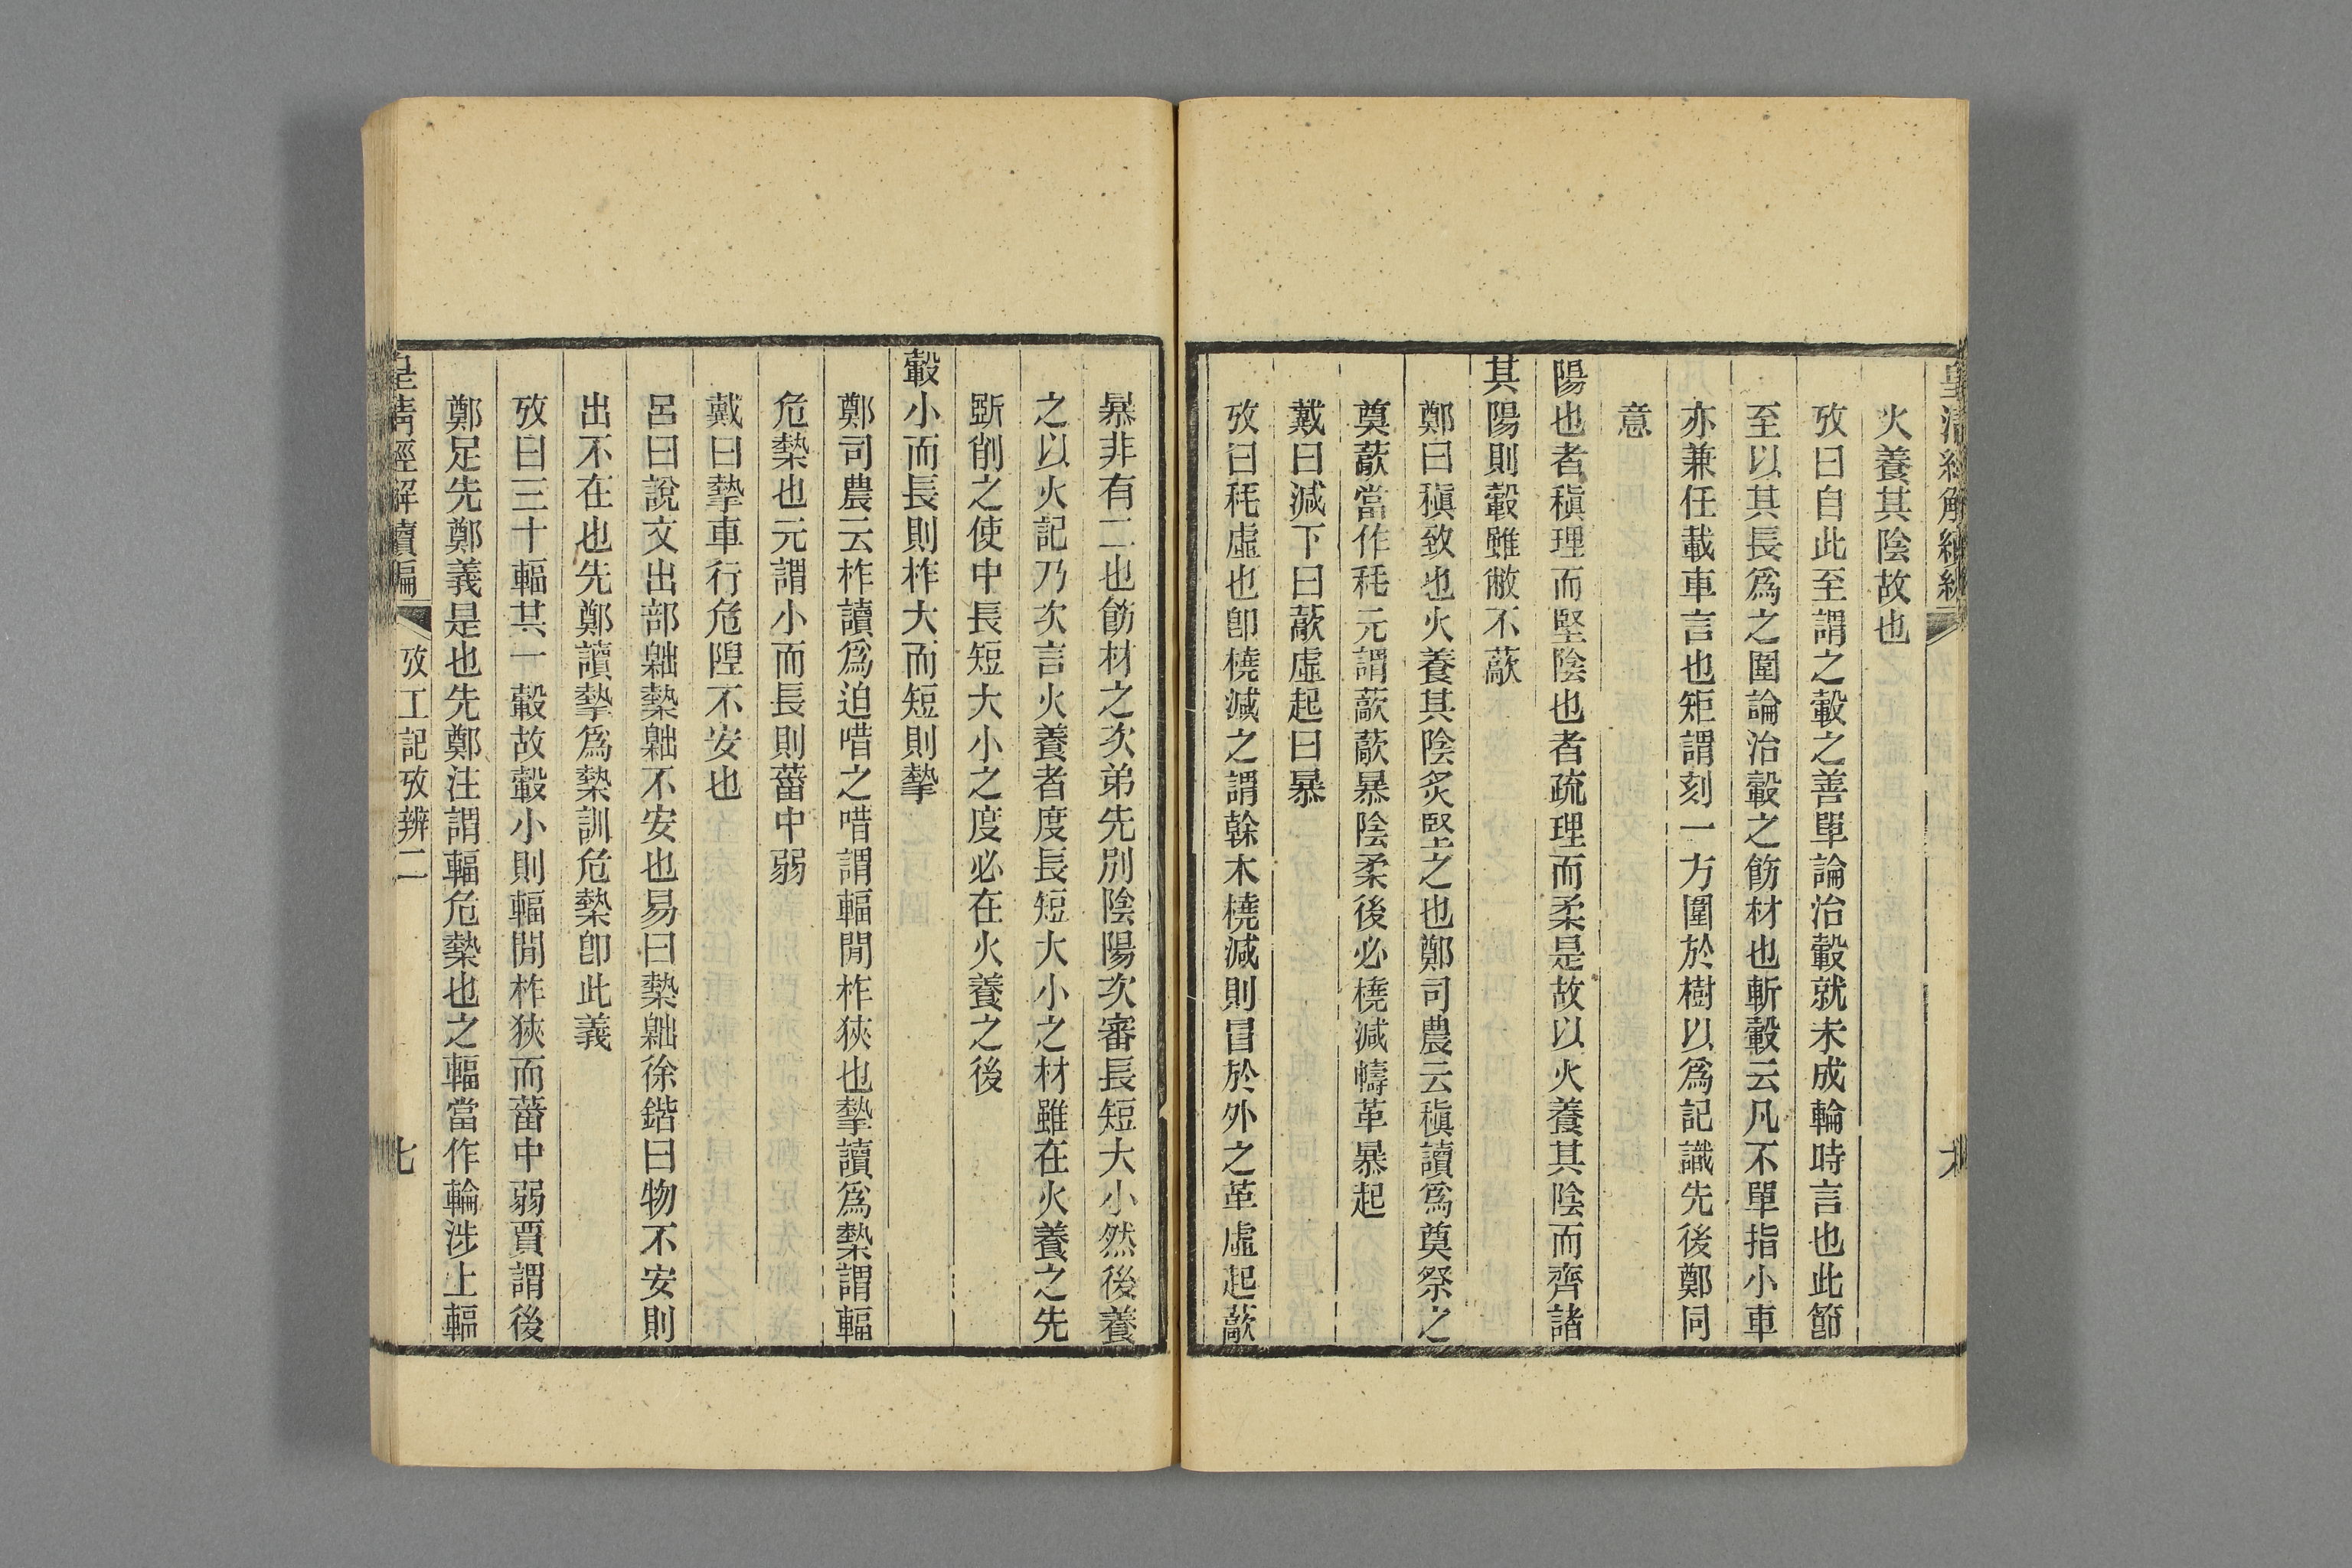 皇清經解續編
六
火養其陰故也
攷曰自此至謂之轂之善單論治轂就未成輪時言也此節
至以其長爲之圍論治轂之飭材也斬轂云凡不單指小車
亦兼任載車言也矩謂刻一方圍於樹以爲記識先後鄭同
意
陽也者稹理而堅陰也者疏理而柔是故以火養其陰而齊諸
其陽則轂雖敝不藃
鄭曰稹致也火養其陰炙堅之也鄭司農云稹讀爲奠祭之
奠藃當作秏元謂藃藃暴陰柔後必橈減幬革暴起
戴曰減下曰藃虛起曰暴
攷曰秏虛也卽橈減之謂榦木橈減則冒於外之革虛起藃
暴非有二也飭材之次弟先別陰陽次審長短大小然後養
之以火記乃次言火養者度長短大小之材雖在火養之先
斲削之使中長短大小之度必在火養之後
轂小而長則柞大而短則摯
鄭司農云柞讀爲迫唶之唶謂輻閒柞狹也摯讀爲槷謂輻
危槷也元謂小而長則菑中弱
戴曰摯車行危隉不安也
呂曰說文出部𣎴槷𣎴不安也易曰槷𣎴徐鍇曰物不安則
出不在也先鄭讀摯爲槷訓危槷卽此義
攷曰三十輻其一轂故轂小則輻閒柞狹而菑中弱賈謂後
鄭足先鄭義是也先鄭注謂輻危槷也之輻當作輪涉上輻
皇清經解續編
攷工記攷辨二
七